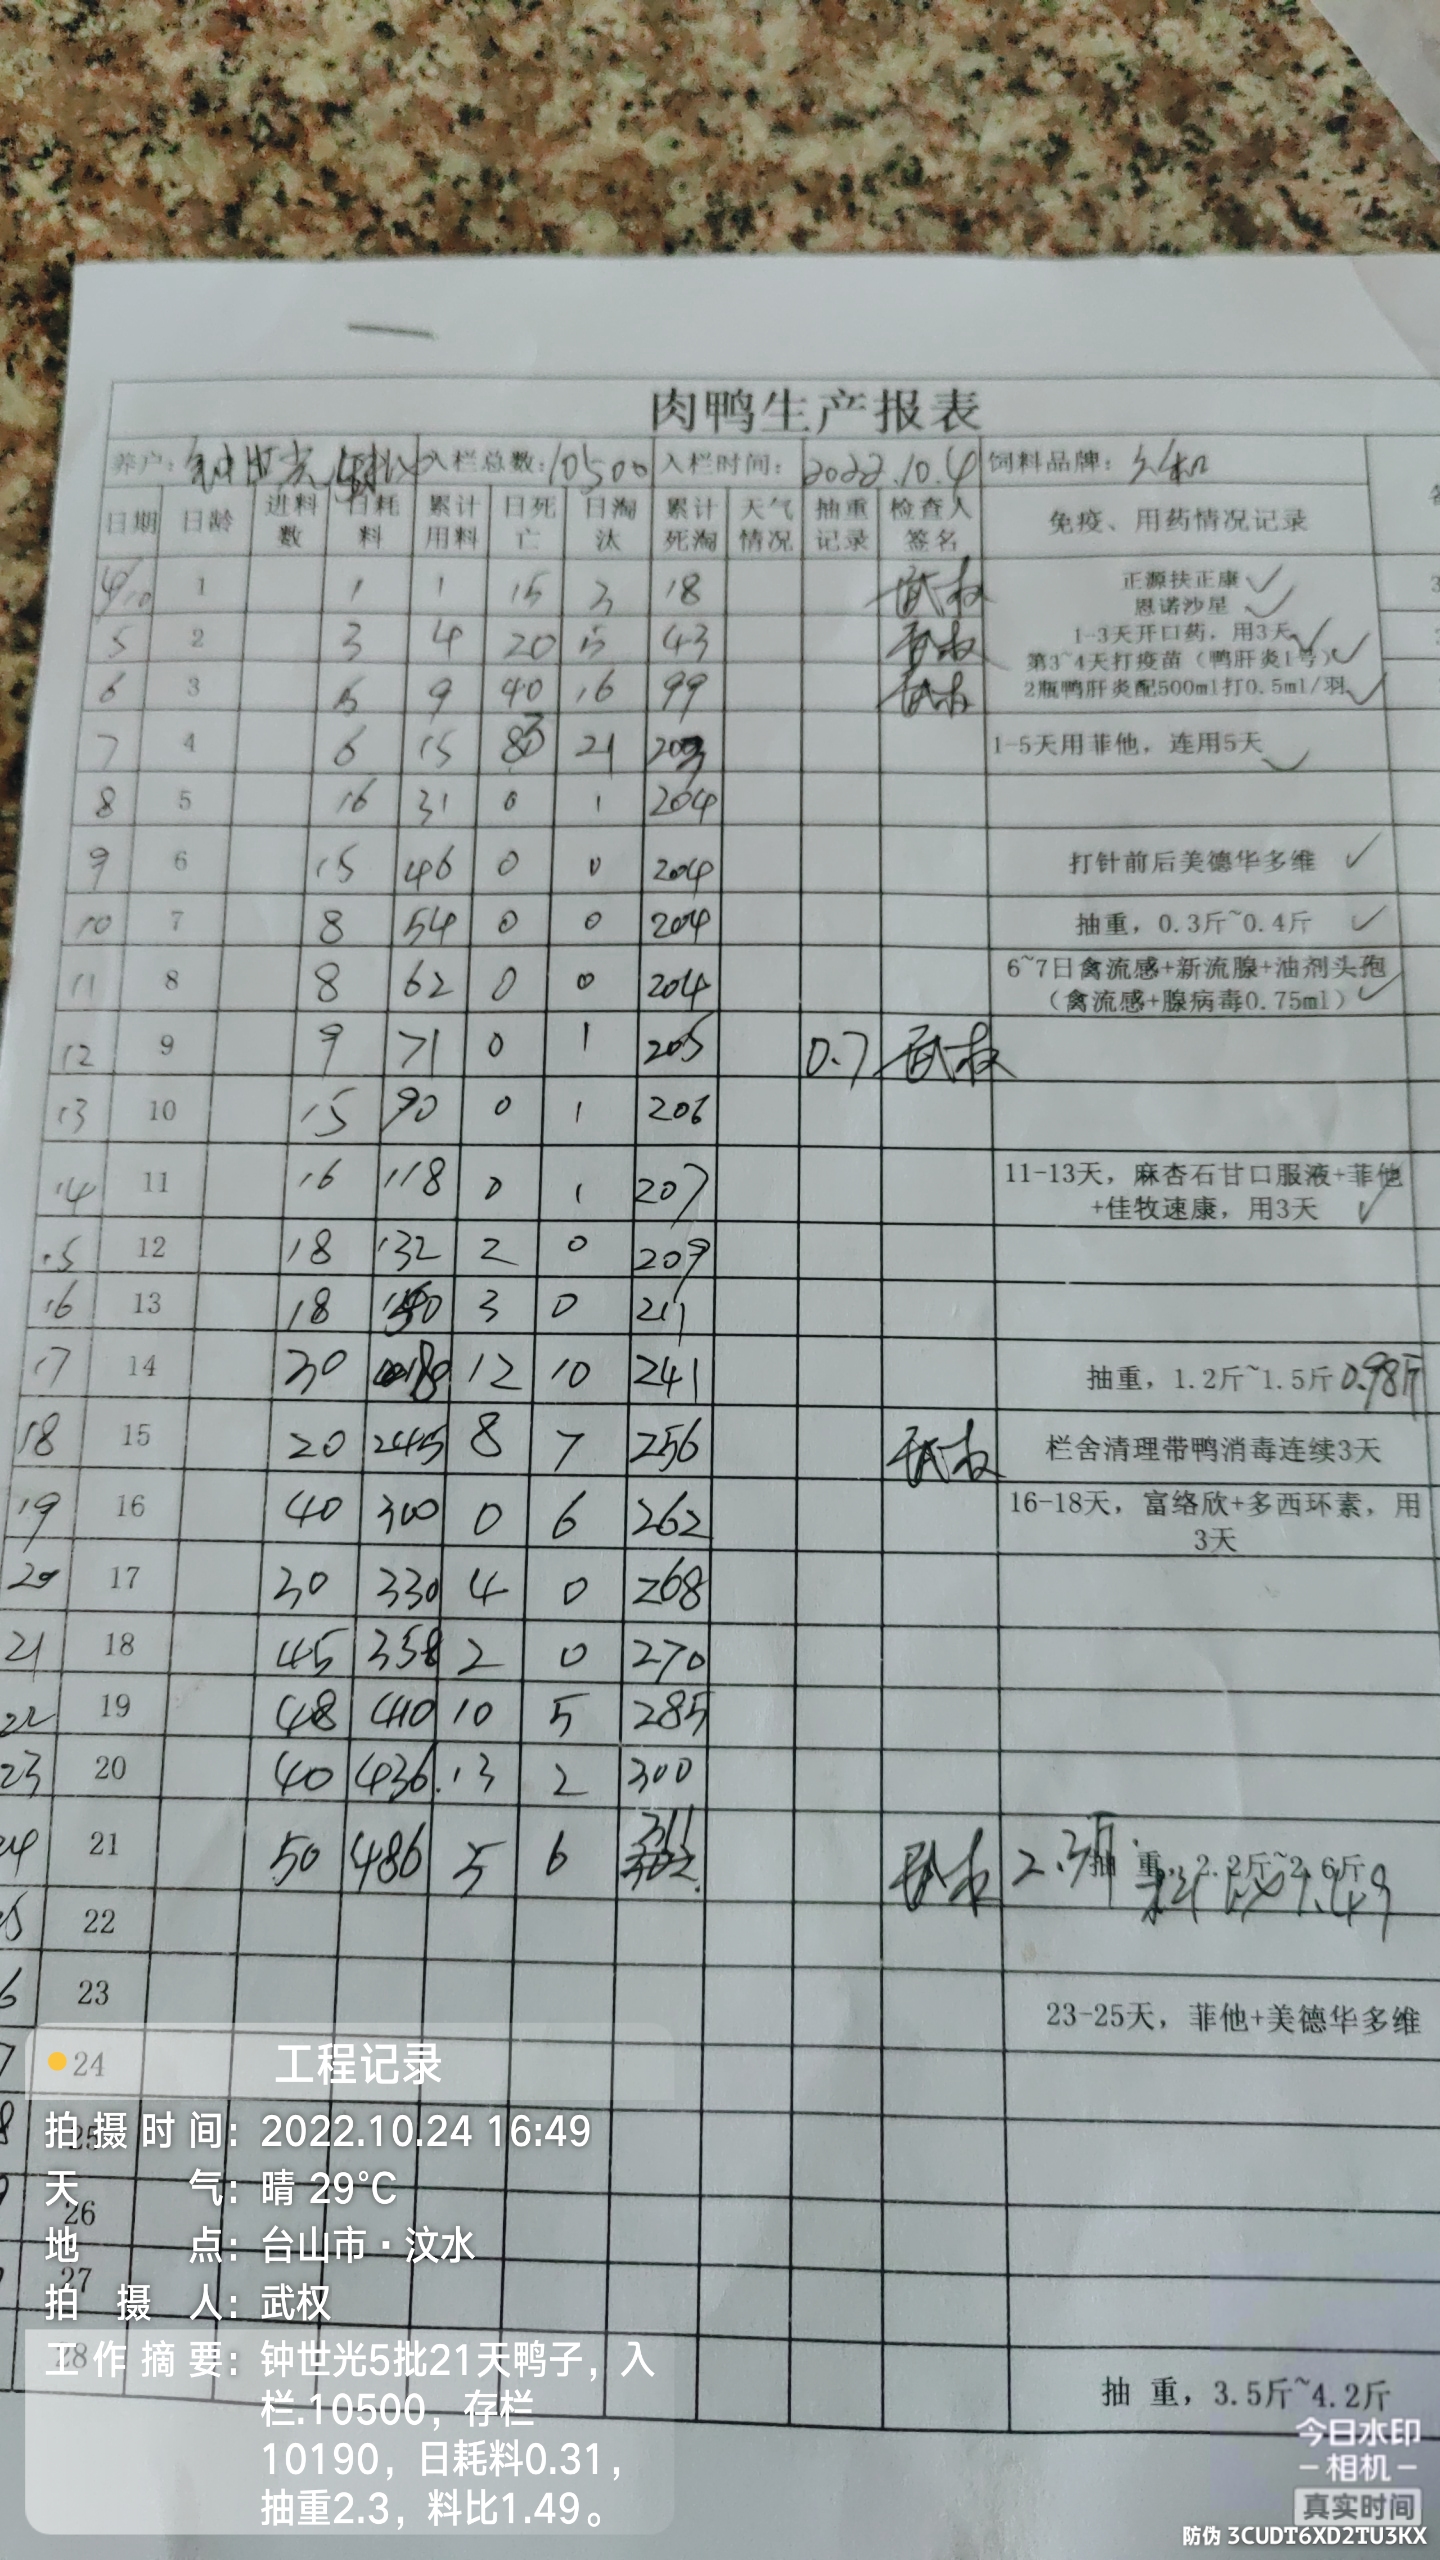 肉鸭生产报表
养户: 钟世光 入栏总数: 10500 入栏时间: 2022.10.4 饲料品牌:
日期 日龄 进料数 日耗料 累计用料 日死亡 日淘汰 累计死淘 天气情况 抽重记录 检查人签名 免疫、用药情况记录
4/10 1 1 1 15 3 18 武权 正源扶正康 ✓
恩诺沙星 ✓
5 2 3 4 20 5 43 武权 1-3天开口药，用3天 ✓
第3~4天打疫苗（鸭肝炎1号） ✓
6 3 5 9 40 16 99 武权 2瓶鸭肝炎配500ml打0.5ml/羽 ✓
7 4 6 15 83 21 203 1-5天用菲他，连用5天 ✓
8 5 16 31 0 1 204
9 6 15 46 0 0 204 打针前后美德华多维 ✓
10 7 8 54 0 0 204 抽重，0.3斤~0.4斤 ✓
11 8 8 62 0 0 204 6~7日禽流感+新流腺+油剂头孢
（禽流感+腺病毒0.75ml） ✓
12 9 9 71 0 1 205 0.7 武权
13 10 15 90 0 1 206
14 11 16 118 0 1 207 11-13天，麻杏石甘口服液+菲他
+佳牧速康，用3天 ✓
15 12 18 132 2 0 209
16 13 18 150 3 0 211
17 14 30 180 12 10 241 抽重，1.2斤~1.5斤 0.98斤
18 15 20 245 8 7 256 武权 栏舍清理带鸭消毒连续3天
19 16 40 300 0 6 262 16-18天，富络欣+多西环素，用
3天
20 17 30 330 4 0 268
21 18 45 358 2 0 270
22 19 48 410 10 5 285
23 20 40 436 13 2 300
24 21 50 486 5 6 311 武权 2.3斤 抽 重，2.2斤~2.6斤
料比1.49
25 22
26 23 23-25天，菲他+美德华多维
24
25
26
27
28 抽 重，3.5斤~4.2斤
工程记录
拍摄时间: 2022.10.24 16:49
天 气: 晴 29°C
地 点: 台山市·汶水
拍 摄 人: 武权
工作摘要: 钟世光5批21天鸭子，入
栏.10500，存栏
10190，日耗料0.31，
抽重2.3，料比1.49。
今日水印
-相机-
真实时间
防伪 3CUDT6XD2TU3KX